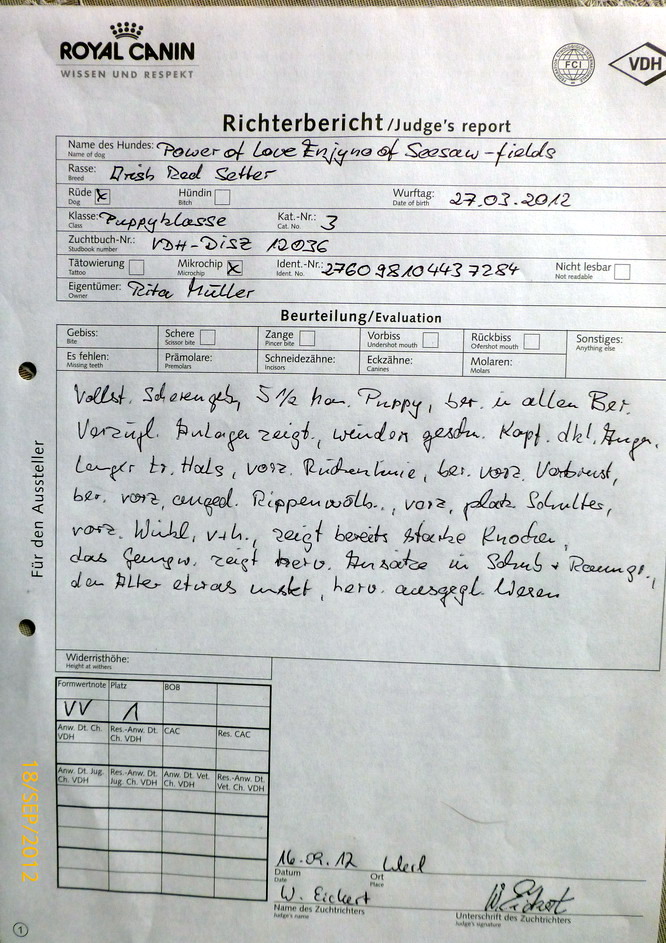 ROYAL CANIN
WISSEN UND RESPEKT
FCI
VDH
Richterbericht/Judge's report
Name des Hundes: Power of Love Enjyno of Seesaw-fields
Name of dog
Rasse: Irish Red Setter
Breed
Rüde x Hündin Wurftag: 27.03.2012
Dog Bitch Date of birth
Klasse: Puppyklasse Kat.-Nr.: 3
Class Cat. No.
Zuchtbuch-Nr.: VDH-DISZ 12036
Studbook number
Tätowierung Mikrochip x Ident.-Nr.: 276098104437284 Nicht lesbar
Tattoo Microchip Ident. No. Not readable
Eigentümer: Rita Müller
Owner
Beurteilung/Evaluation
Gebiss: Schere Zange Vorbiss Rückbiss Sonstiges:
Bite Scissor bite Pincer bite Undershot mouth Ofershot mouth Anything else
Es fehlen: Prämolare: Schneidezähne: Eckzähne: Molaren:
Missing teeth Premolars Incisors Canines Molars
Vollst. Scherengeb, 5 1/2 Puppy, ber. in allen Ber.
Vorzügl. Anlagen zeigt, gesch. Kopf. dkl. Augen
langer tr. Hals, vorz. Rückenlinie, ber. vorz. Vorbrust,
ber. vorz. anged. Rippenwölb., vorz. plaz. Schulter,
vorz. Winkl. v+h., zeigt bereits starke Knochen,
das Gangw. zeigt herv. Ansätze in Schub + Raumgr.,
dem Alter etwas unstet, herv. ausgegl. Wesen
Für den Aussteller
Widerristhöhe:
Height at withers
Formwertnote Platz BOB
VV 1
Anw. Dt. Ch. VDH Res.-Anw. Dt. Ch. VDH CAC Res. CAC
Anw. Dt. Jug. Ch. VDH Res.-Anw. Dt. Jug. Ch. VDH Anw. Dt. Vet. Ch. VDH Res.-Anw. Dt. Vet. Ch. VDH
16.09.12 Werl
Datum Ort
Date Place
W. Eickert
Name des Zuchtrichters
Judge's name
W. Eickert
Unterschrift des Zuchtrichters
Judge's signature
18/SEP/2012
1